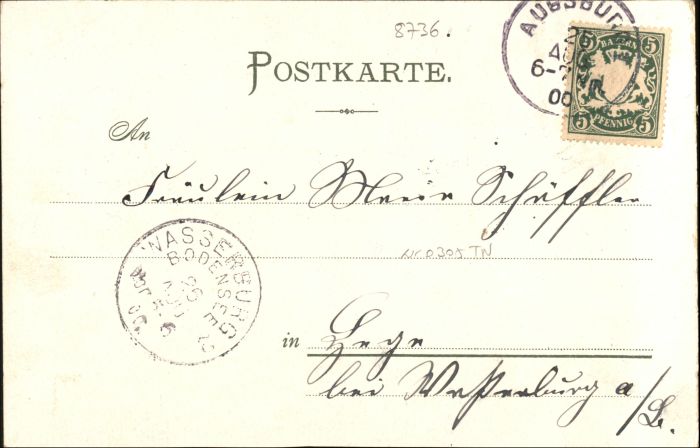 8736.
AUGSBURG
6-7
00
5 BAYERN 5
5 PFENNIG 5
POSTKARTE.
An
Fräulein Marie Schäffler
WASSERBURG
BODENSEE
26
AUG
00
in Hege
bei Wasserburg a/B.